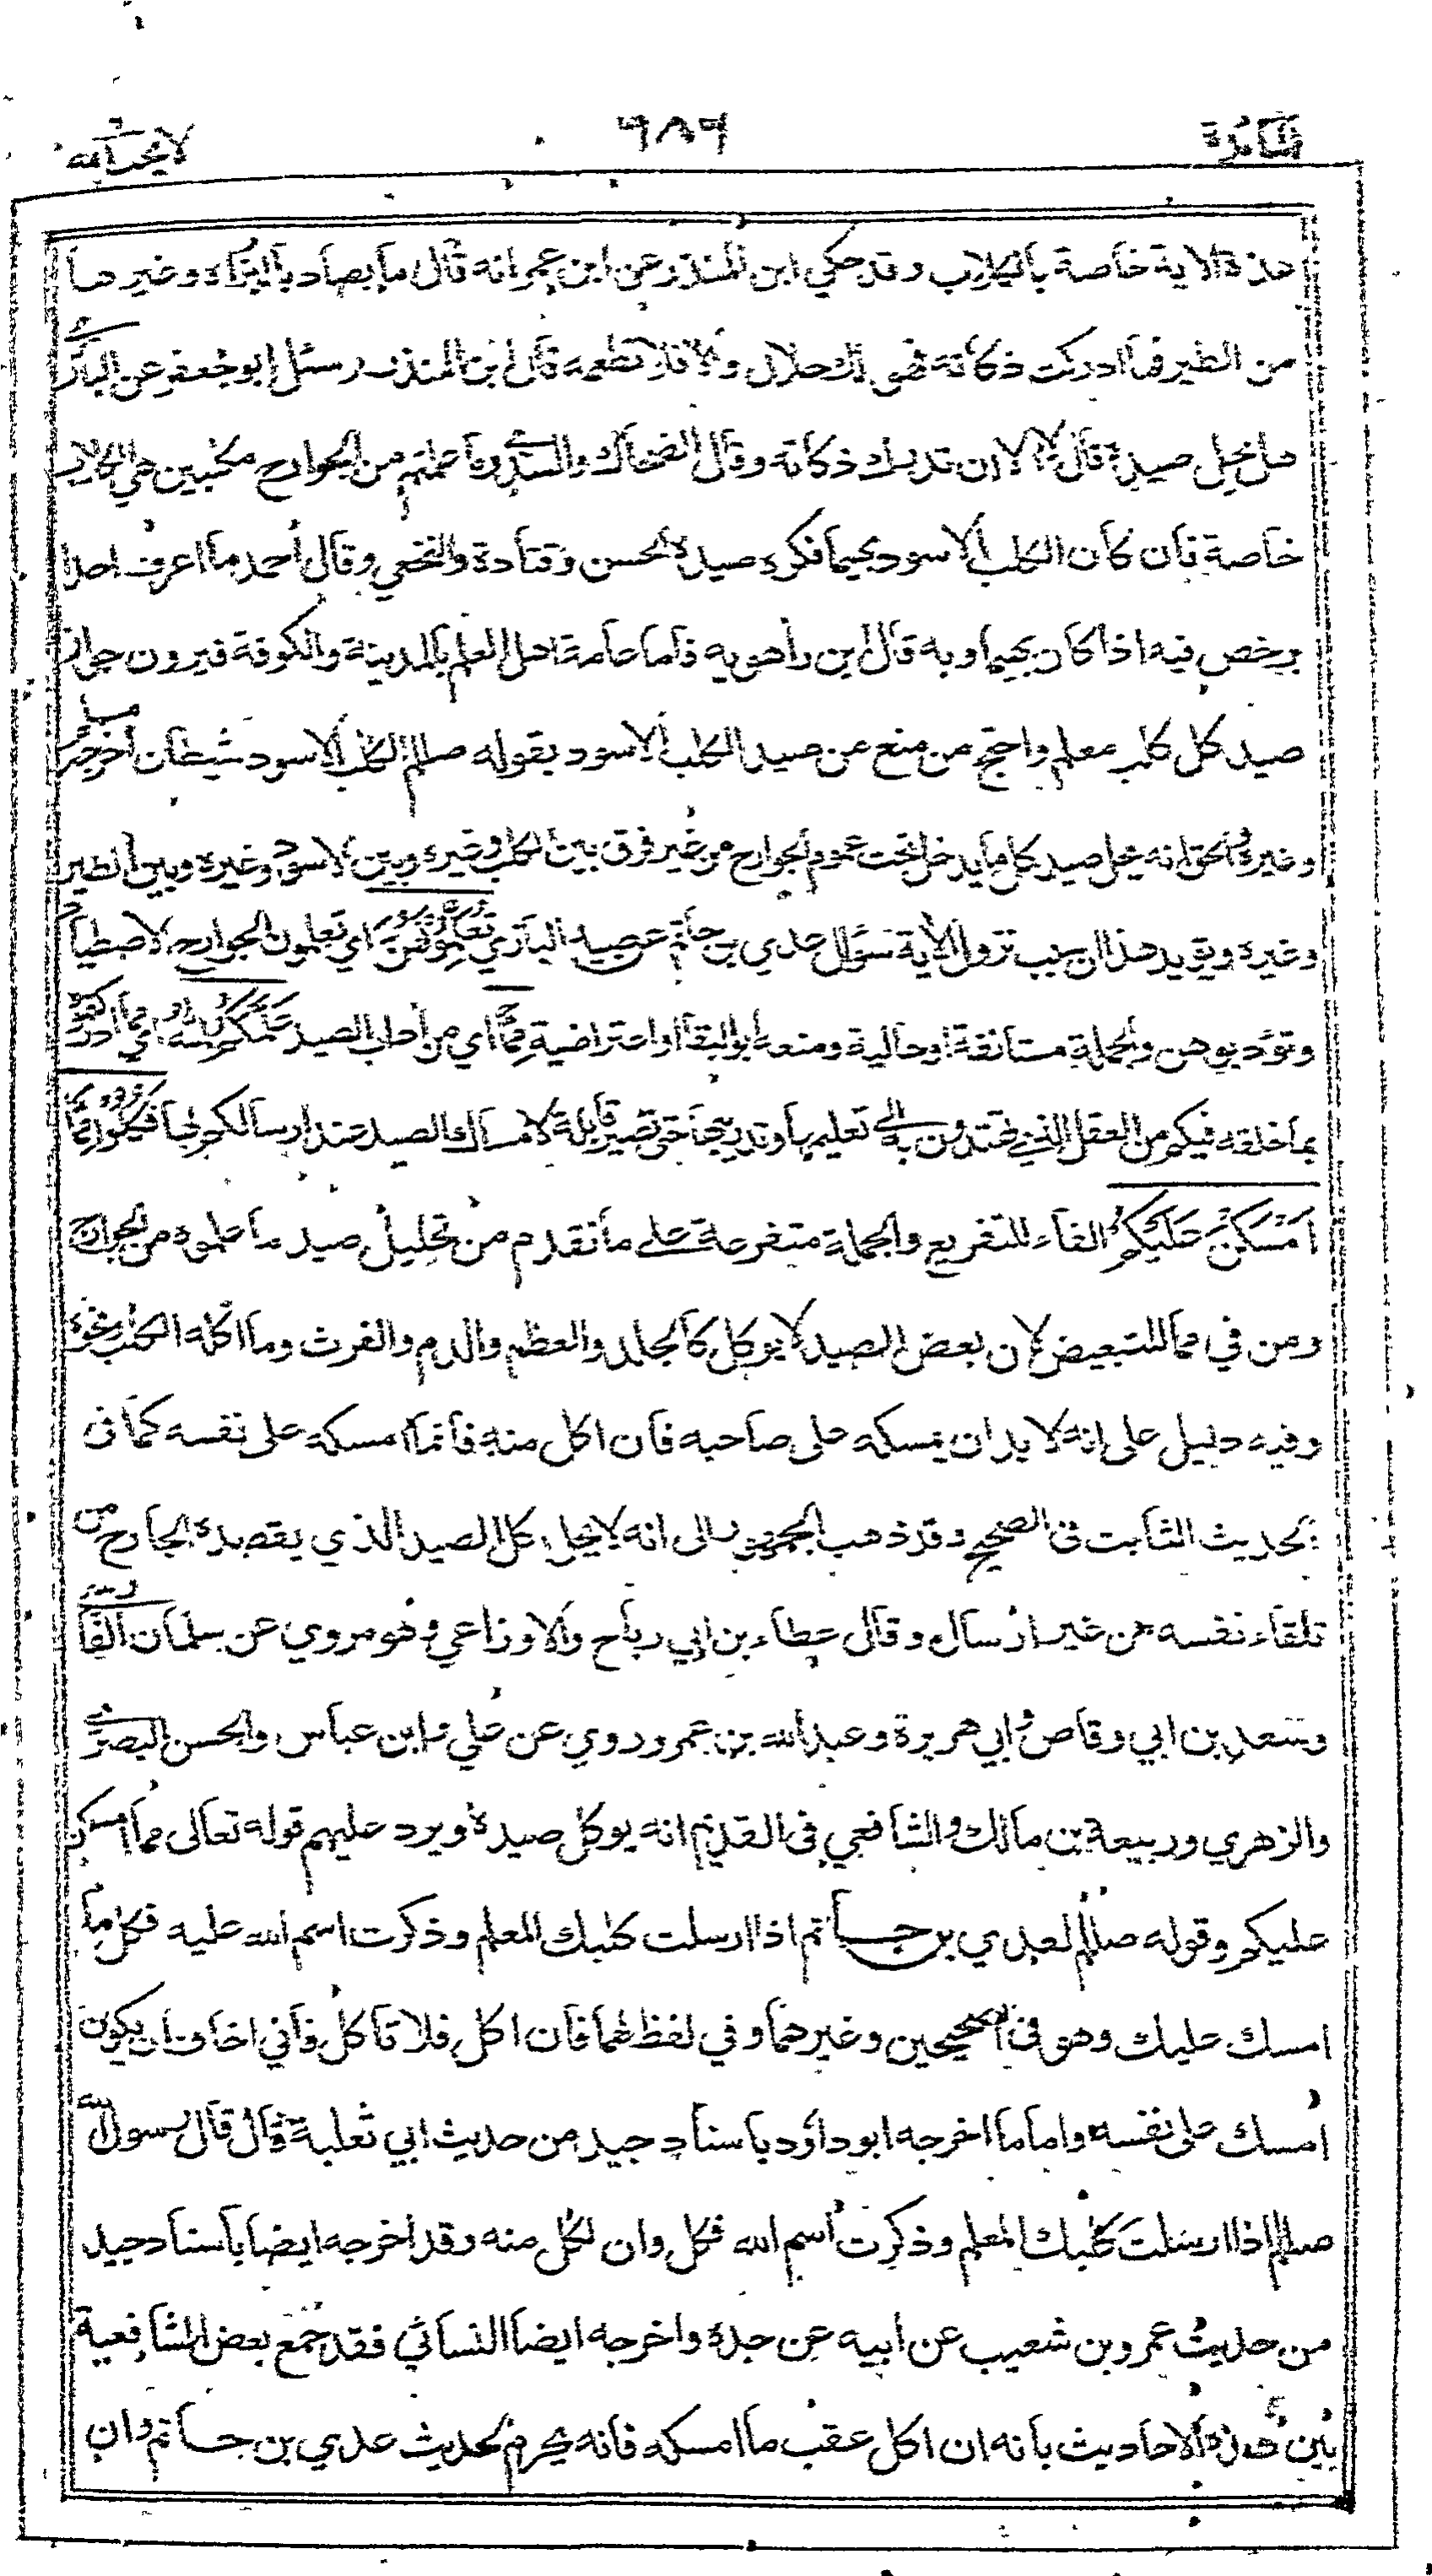 المائدة ٦٨٦ لا يحب الله
هذه الاية خاصة بالكلاب وقد حكي ابن المنذر عن ابن عمر انه قال ما يصاد بالبزاة وغيرها
من الطير فما ادركت ذكاته فهو لك حلال والا فلا تطعمه قال ابن المنذر وسئل ابو جعفر عن البازي
هل يحل صيده قال لا الا ان تدرك ذكاته وقال الضحاك والسدي وما علمتم من الجوارح مكلبين هي الكلاب
خاصة فان كان الكلب الاسود بهيما فكره صيده الحسن وقتادة والنخعي وقال احمد ما اعرف احدا
يرخص فيه اذا كان بهيما وبه قال ابن راهويه فاما عامة اهل العلم بالمدينة والكوفة فيرون جواز
صيد كل كلب معلم واحتج من منع من صيد الكلب الاسود بقوله صللم الكلب الاسود شيطان اخرجه مسلم
وغيره والحق انه يحل صيد كل ما يدخل تحت عموم الجوارح من غير فرق بين الكلب وغيره وبين الاسود وغيره وبين الطير
وغيره ويؤيد هذا ان سبب نزول الاية سؤال عدي بن حاتم عن صيد البازي تُعَلِّمُونَهُنَّ اي تعلمون الجوارح الاصطياد
وتؤدبوهن والجملة مستانفة او حالية ومنعه ابو البقا او اعتراضية مِمَّا اي من اداب الصيد عَلَّمَكُمُ اللَّهُ اي مما ادركتموه
بما خلقه فيكم من العقل الذي تهتدون به الى تعليمها وتدريبها حتى تصير قابلة لامساك الصيد عند ارسالكم لها فَكُلُوا مِمَّا
اَمْسَكْنَ عَلَيْكُمْ الفاء للتفريع والجملة متفرعة على ما تقدم من تحليل صيد ما علموه من الجوارح
ومن في مما للتبعيض لان بعض الصيد لا يوكل كالجلد والعظم والدم والفرث وما اكله الكلب ونحوه
وفيه دليل على انه لا بد ان يمسكه على صاحبه فان اكل منه فانما امسكه على نفسه كما في
الحديث الثابت في الصحيح وقد ذهب الجمهور الى انه لا يحل اكل الصيد الذي يقصده الجارح من
تلقاء نفسه من غير ارسال وقال عطاء بن ابي رباح والاوزاعي وهو مروي عن سلمان الفارسي
وسعد بن ابي وقاص وابي هريرة وعبد الله بن عمر وروي عن علي وابن عباس والحسن البصري
والزهري وربيعة بن مالك والشافعي في القديم انه يوكل صيده ويرد عليهم قوله تعالى مما امسكن
عليكم وقوله صللم لعدي بن حاتم اذا ارسلت كلبك المعلم وذكرت اسم الله عليه فكل ما
امسك عليك وهو في الصحيحين وغيرهما وفي لفظ لهما فان اكل فلا تاكل فاني اخاف ان يكون
امسك على نفسه واما ما اخرجه ابو داؤد باسناد جيد من حديث ابي ثعلبة قال قال رسول الله
صللم اذا ارسلت كلبك المعلم وذكرت اسم الله فكل وان اكل منه وقد اخرجه ايضا باسناد جيد
من حديث عمرو بن شعيب عن ابيه عن جده واخرجه ايضا النسائي فقد جمع بعض الشافعية
بين هذه الاحاديث بانه ان اكل عقب ما امسكه فانه يحرم لحديث عدي بن حاتم وان